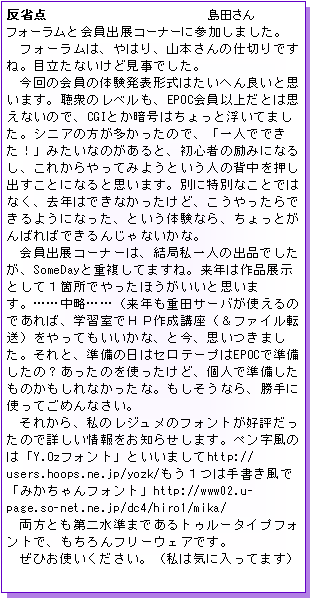 反省点 島田さん
フォーラムと会員出展コーナーに参加しました。
　フォーラムは、やはり、山本さんの仕切りですね。目立たないけど見事でした。
　今回の会員の体験発表形式はたいへん良いと思います。聴衆のレベルも、EPOC会員以上だとは思えないので、CGIとか暗号はちょっと浮いてました。シニアの方が多かったので、「一人でできた！」みたいなのがあると、初心者の励みになるし、これからやってみようという人の背中を押し出すことになると思います。別に特別なことではなく、去年はできなかったけど、こうやったらできるようになった、という体験なら、ちょっとがんばればできるんじゃないかな。
　会員出展コーナーは、結局私一人の出品でしたが、SomeDayと重複してますね。来年は作品展示として１箇所でやったほうがいいと思います。……中略……（来年も重田サーバが使えるのであれば、学習室でＨＰ作成講座（＆ファイル転送）をやってもいいかな、と今、思いつきました。それと、準備の日はセロテープはEPOCで準備したの？あったのを使ったけど、個人で準備したものかもしれなかったな。もしそうなら、勝手に使ってごめんなさい。
　それから、私のレジュメのフォントが好評だったので詳しい情報をお知らせします。ペン字風のは「Y.Ozフォント」といいましてhttp://
users.hoops.ne.jp/yozk/もう１つは手書き風で「みかちゃんフォント」http://www02.u-
page.so-net.ne.jp/dc4/hiro1/mika/
　両方とも第二水準まであるトゥルータイプフォントで、もちろんフリーウェアです。
　ぜひお使いください。（私は気に入ってます）